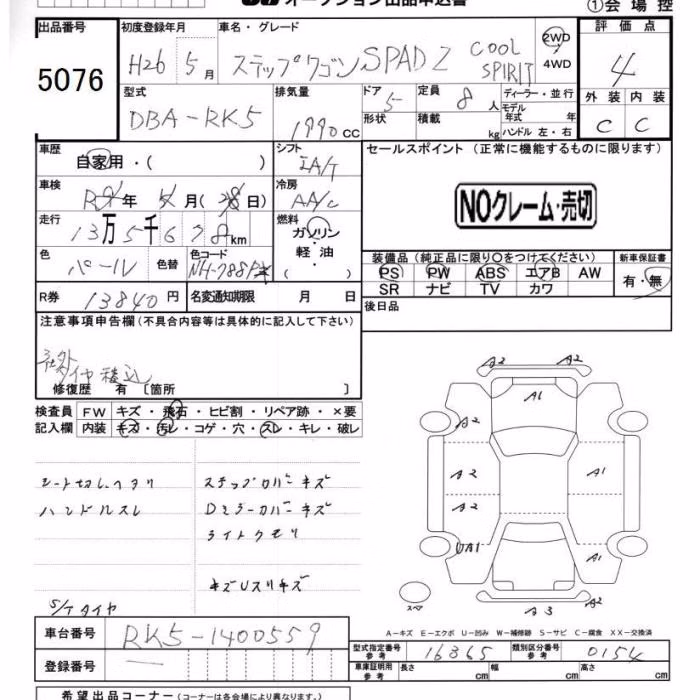 オークション出品申込書
①会場控
出品番号 初度登録年月 車名・グレード 評価点
5076 H26年5月 ステップワゴン SPADZ COOL SPIRIT 2WD・4WD 4
型式 排気量 ドア 5 定員 8人 ディーラー・並行 外装 内装
DBA-RK5 1990cc 形状 積載 kg モデル年式 年式 C C
ハンドル 左・右
車歴 自家用・( ) シフト IA/T セールスポイント (正常に機能するものに限ります)
車検 年 月( 日) 冷房 AA/C
NOクレーム・売切
走行 13万5千678km 燃料 ガソリン・軽油・( )
色 パール 色替 色コード NH-788P 装備品(純正品に限り○をつけてください) 新車保証書
PS PW ABS エアB AW 有・無
SR ナビ TV カワ
R券 13840円 名変通知期限 月 日 後日品
注意事項申告欄(不具合内容等は具体的に記入して下さい)
タイヤ積込
修復歴 有 〔箇所 〕
検査員 FW キズ・飛石・ヒビ割・リペア跡・×要
記入欄 内装 キズ・汚レ・コゲ・穴・スレ・キレ・破レ
シート切レヘタリ ステップカバーキズ
ハンドルスレ Dミラーカバーキズ
ライトクモリ
キズUスリキズ
S/Tタイヤ
A2 A2
A1
A2
A2 A1
A2
UA1 A1
A3 A2
スペア
A－キズ E－エクボ U－凹み W－補修跡 S－サビ C－腐食 XX－交換済
車台番号 RK5-1400559
型式指定番号 参考 16365 類別区分番号 参考 0154
登録番号 —
車庫証明用 参考 長さ cm 幅 cm 高さ cm
希望出品コーナー(コーナーは各会場により異なります。)